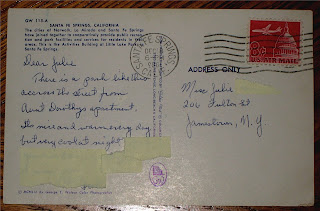 GW 115-A
SANTA FE SPRINGS, CALIFORNIA
The cities of Norwalk, La Mirada and Santa Fe Springs
have joined together to cooperatively provide public recrea-
tion and park facilities and services for residents in these
areas. This is the Activities Building at Little Lake Park in
Santa Fe Springs.
Dear Julie
There is a park like this
across the street from
Aunt Dorothy's apartment.
It's nice and warm every day
but very cool at night.
SANTA FE SPRINGS
DEC
8c
U.S. AIR MAIL
ADDRESS ONLY
Miss Julie
206 Fulton St
Jamestown, N.Y